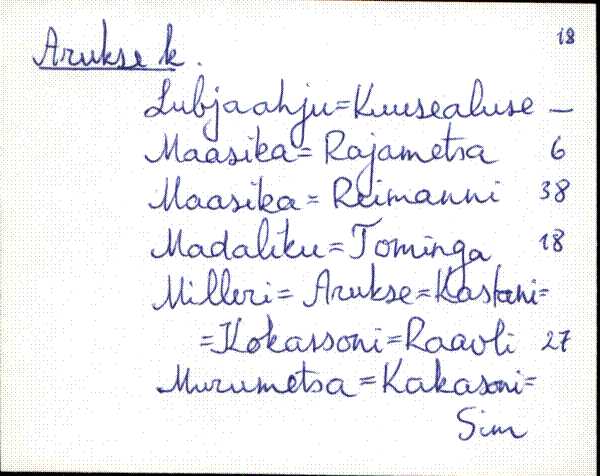 18
Arukse k.
Lubjaahju=Kuusealuse —
Maasika= Rajametsa 6
Maasika= Reimanni 38
Madaliku=Tominga 18
Milleri= Arukse=Kastani=
=Kokassoni=Raavli 27
Murumetsa=Kakasoni=
Sim